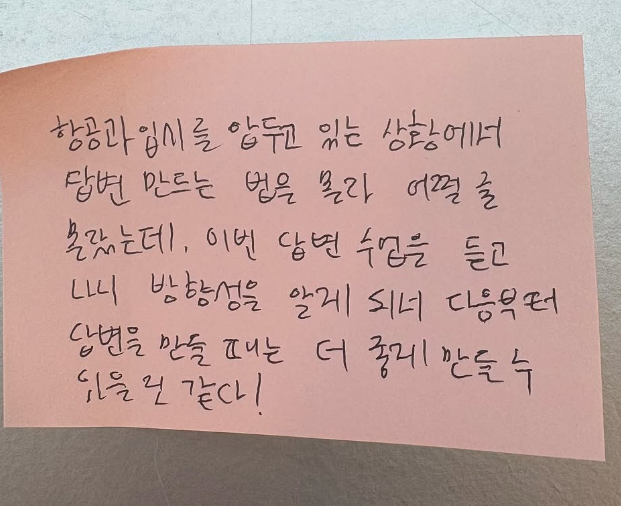 항공과 입시를 앞두고 있는 상황에서
답변 만드는 법을 몰라 어쩔 줄
몰랐는데, 이번 답변 수업을 듣고
나니 방향성을 알게 되너 다음부터
답변을 만들 때는 더 좋게 만들 수
있을 것 같다!